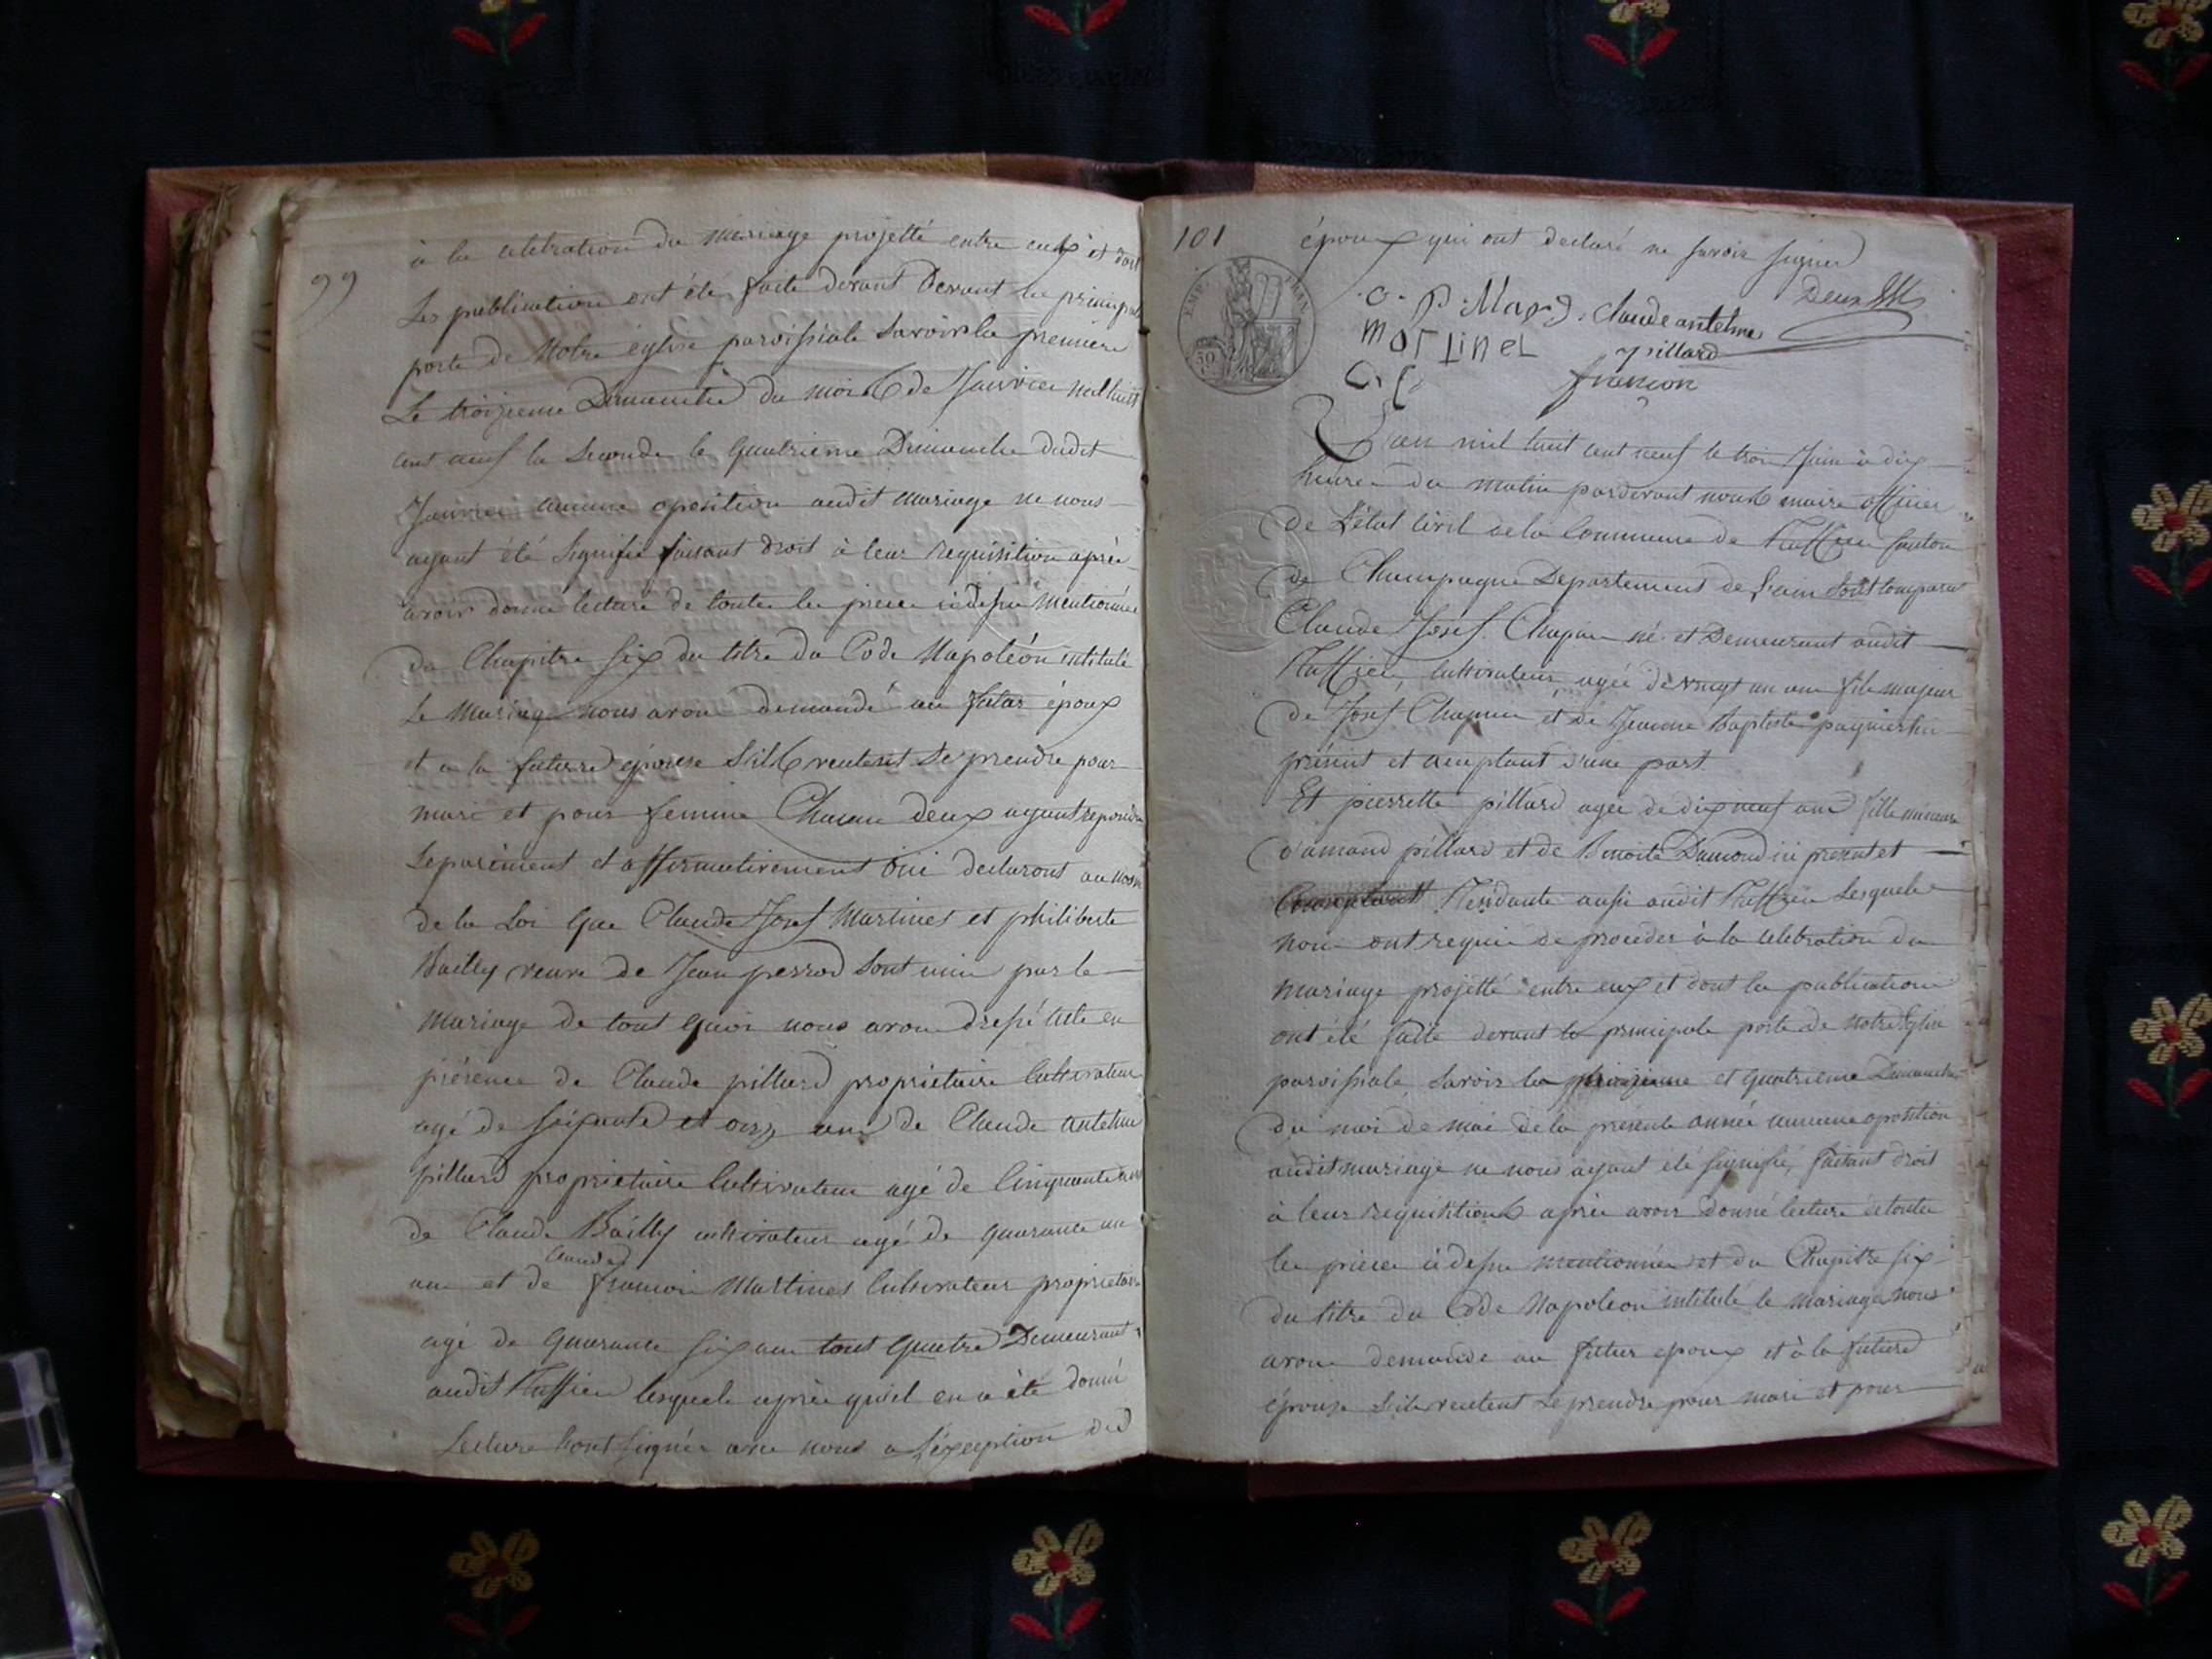 99
à la celebration du mariage projetté entre eux et dont
Les publication ont étés faite devant devant la principale
porte de Notre église paroissiale Savoir la premiere
Le troizieme Dimanche du mois de Janvier mil huit
cent neuf la Seconde le quatrieme Dimanche dudit
Janvier aucune oposition audit mariage ne nous
ayant été Signifié faisant droit à leur requisition après
avoir donné lecture de toute les piece cidessu mentionnée
du Chapitre six du titre du Code Napoléon intitulé
Le Mariage nous avons demandé au futur époux
et a la future épouse S'ils veulent se prendre pour
mari et pour femme Chacun deux ayant repondu
Separement et affirmativement oui declarons au nom
de la Loi que Claude Josef Martinet et philiberte
Bailly veuve de Jean perrod Sont unis par le
mariage de tout quoi nous avons dressé acte en
présence de Claude pillard proprietaire Cultivateur
agé de soixante et onze ans de Claude antelme
pillard proprietaire Cultivateur agé de Cinquante
de Claude Bailly cultivateur agé de quarante un
Claude
ans et de francois Martinet Cultivateur proprietaire
agé de quarante six ans tout quatre Demeurant
audit Ruffieu lesquels après quil en a été donné
Lecture ont signés avec nous a l'éxception des
101
époux qui ont declaré ne savoir signer
EMP. FRAN.
50
Claude antelme
pillard
martinet
francon
L'an mil huit cent neuf le trois Juin à dix
heures du matin pardevant nous maire officier
de L'état Civil de la Commune de Ruffieu Canton
de Champagne Departement de L'ain Sont comparu
Claude Josef Chapuis né et Demeurant audit
Ruffieu Cultivateur agée de vingt un ans fils majeur
de Josef Chapuis et de Jeanne Baptiste ici
présent et aceptant d'une part
Et pierrette pillard agée de dix neuf ans fille mineure
d'amand pillard et de Benoite Dumond ici present et
Residante aussi audit Ruffieu Lesquels
nous ont requis de proceder à la celebration du
mariage projetté entre eux et dont la publication
ont été faite devant la principale porte de notre église
paroissiale Savoir la et quatrieme Dimanche
du mois de mai de la présente année aucune oposition
audit mariage ne nous ayant été signifié, faisant droit
à leur requisition après avoir donné lecture de toute
les piece cidessu mentionnée et du Chapitre six
du titre du Code Napoleon intitulé le mariage nous
avons demandé au futur epoux et à la future
épouse S'ils veulent se prendre pour mari et pour